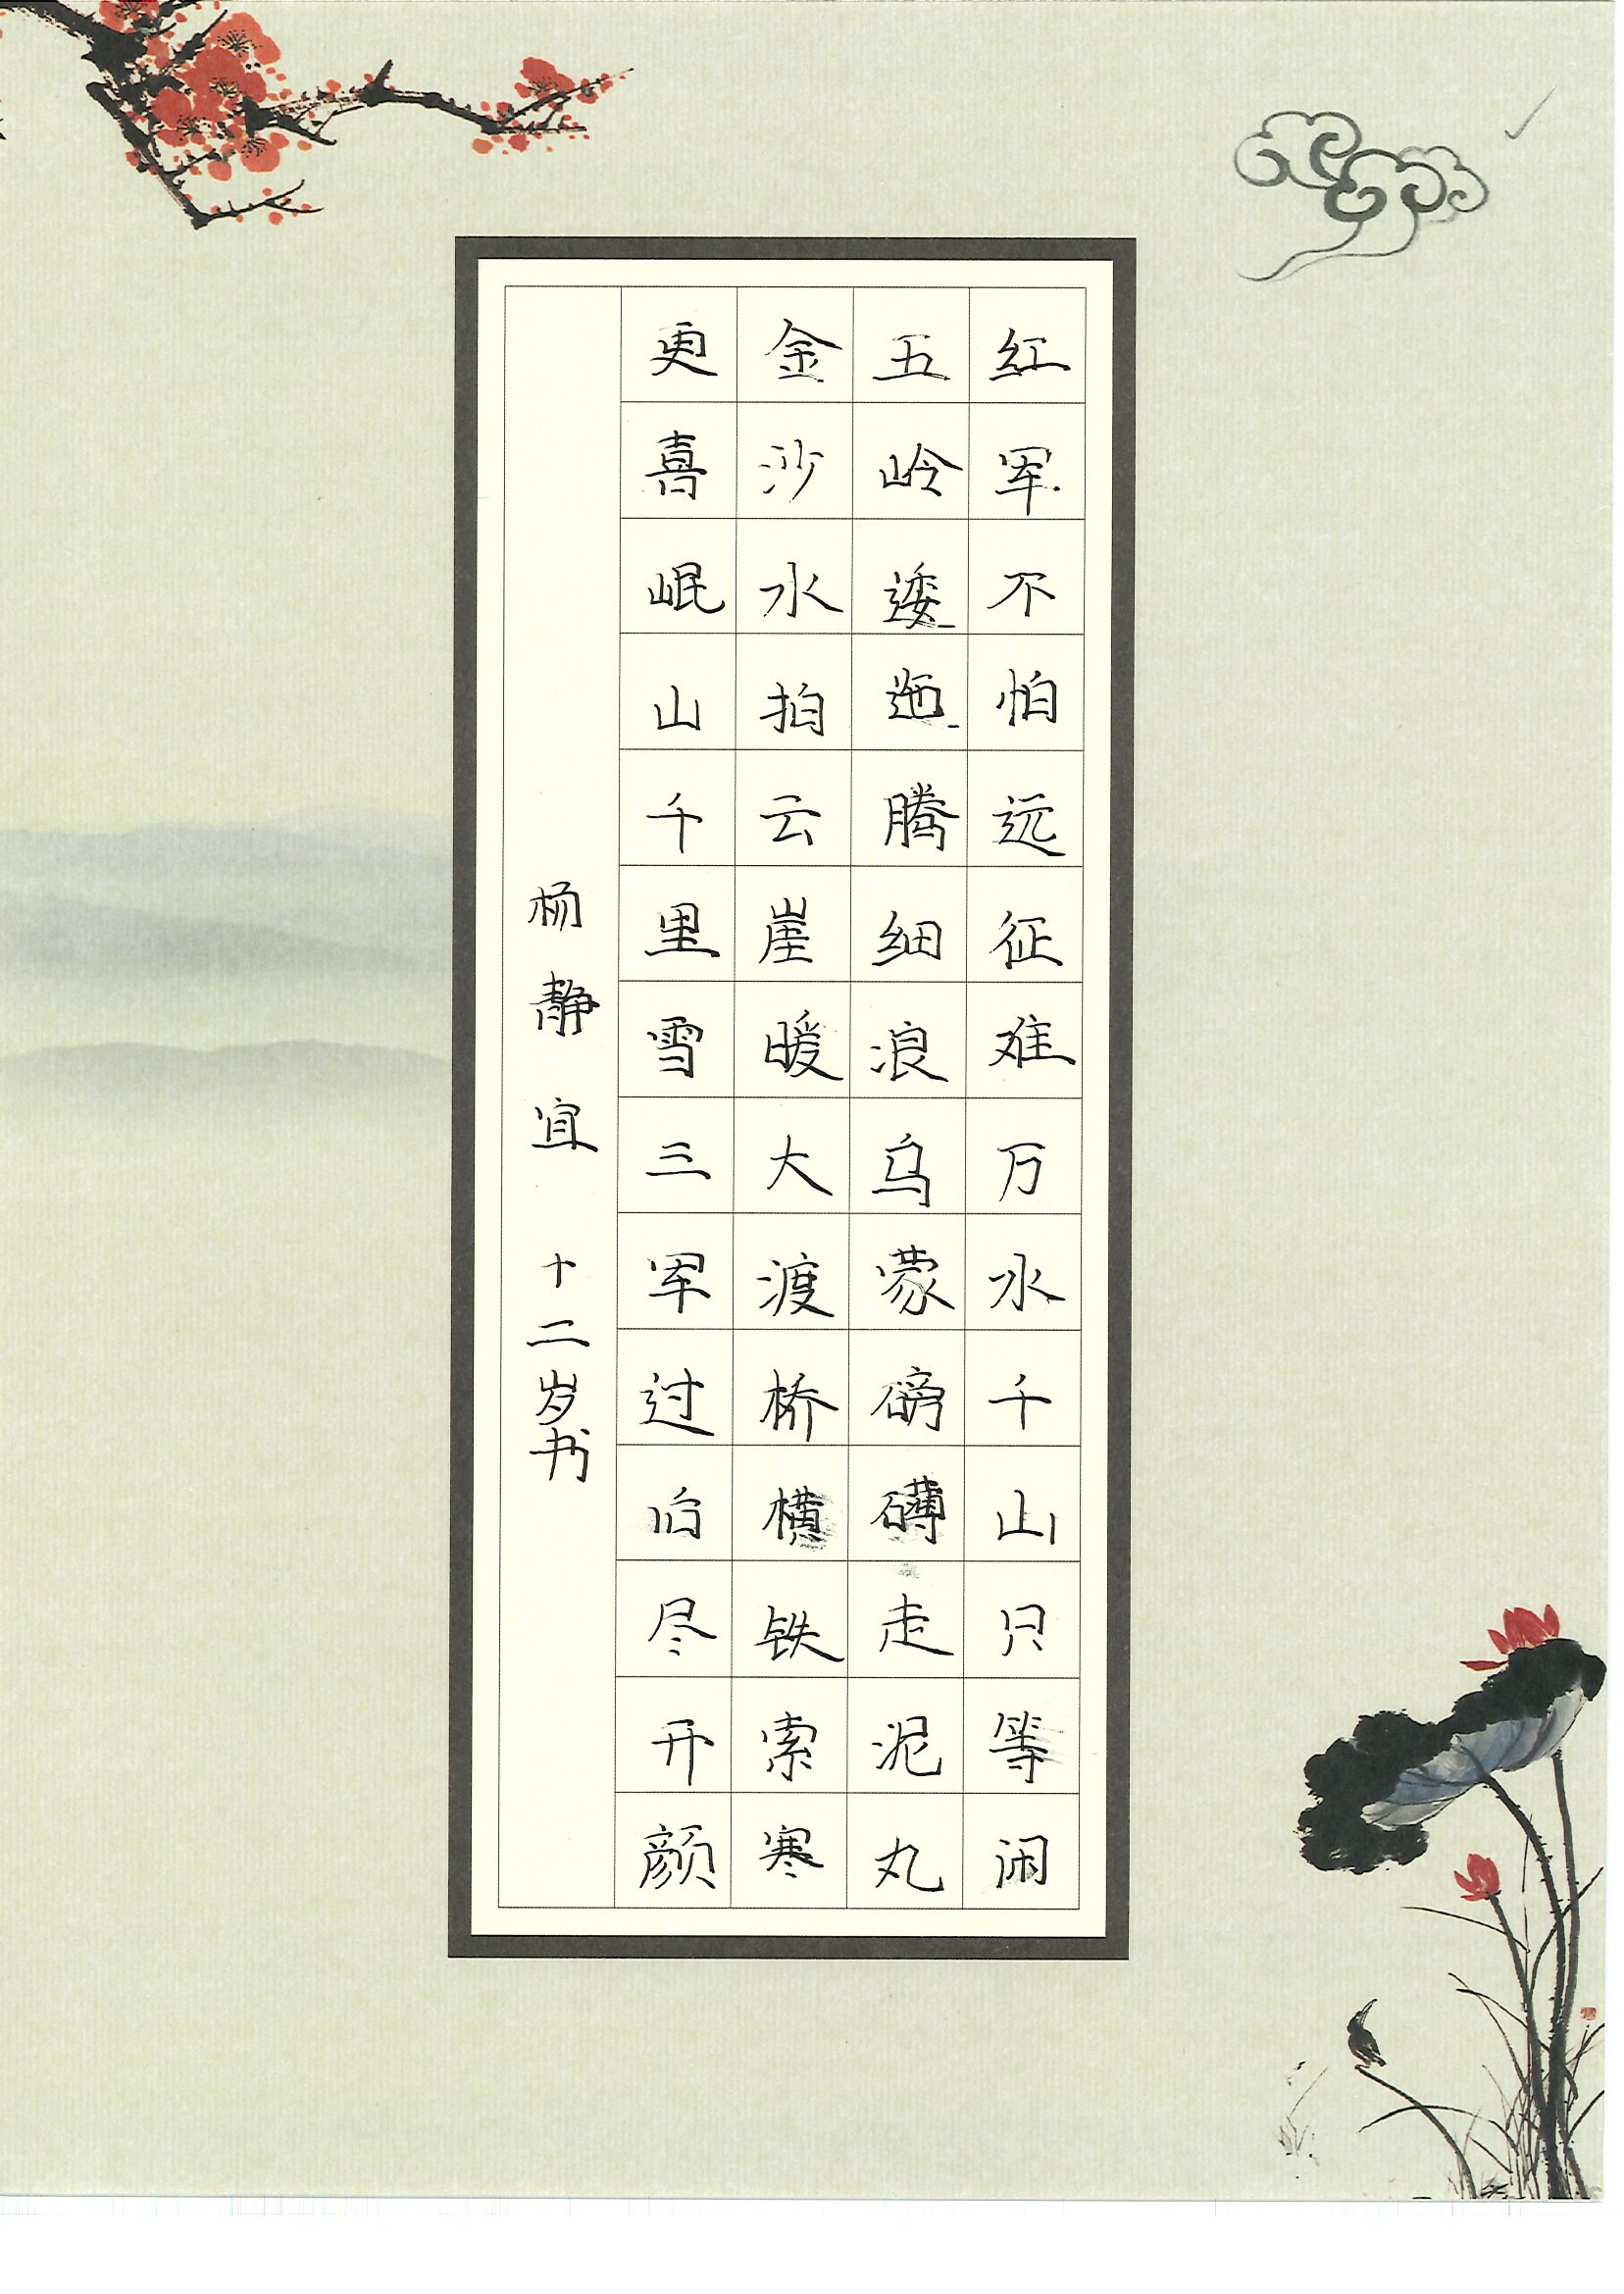 红军不怕远征难万水千山只等闲
五岭逶迤腾细浪乌蒙磅礴走泥丸
金沙水拍云崖暖大渡桥横铁索寒
更喜岷山千里雪三军过后尽开颜
杨静宜 十二岁书